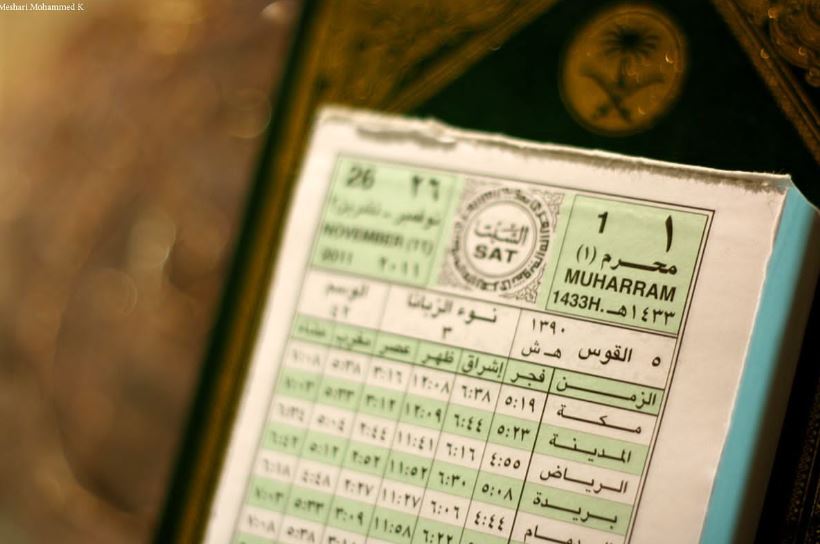 Meshari.Mohammed K
26 ٢٦
نوفمبر - تشرين٢
NOVEMBER (11)
2011 ٢٠١١
السَّبْت
SAT
1 ١
محرم (١)
MUHARRAM
1433H. ١٤٣٣هـ
الوسم
٤٢
نوء الزبانا
٣
١٣٩٠
هـ ش
٥ القوس
الزمن فجر إشراق ظهر عصر مغرب عشاء
مكة ٥:١٩ ٦:٣٨ ١٢:٠٨ ٣:١٦ ٥:٣٨ ٧:٠٨
المدينة ٥:٢٣ ٦:٤٤ ١٢:٠٩ ٣:١٢ ٥:٣٣ ٧:٠٣
الرياض ٤:٥٥ ٦:١٦ ١١:٤١ ٢:٤٤ ٥:٠٤ ٦:٣٤
بريدة ٥:٠٨ ٦:٣٠ ١١:٥٢ ٢:٥٢ ٥:١٢ ٦:٤٢
الدمام ٤:٤٤ ٦:٠٦ ١١:٢٧ ٢:٢٧ ٤:٤٨ ٦:١٨
٦:٢٢ ١١:٥٨ ٣:٠٩ ٥:٣٣ ٧:٠٣
٥:٣٨ ٧:٠٨